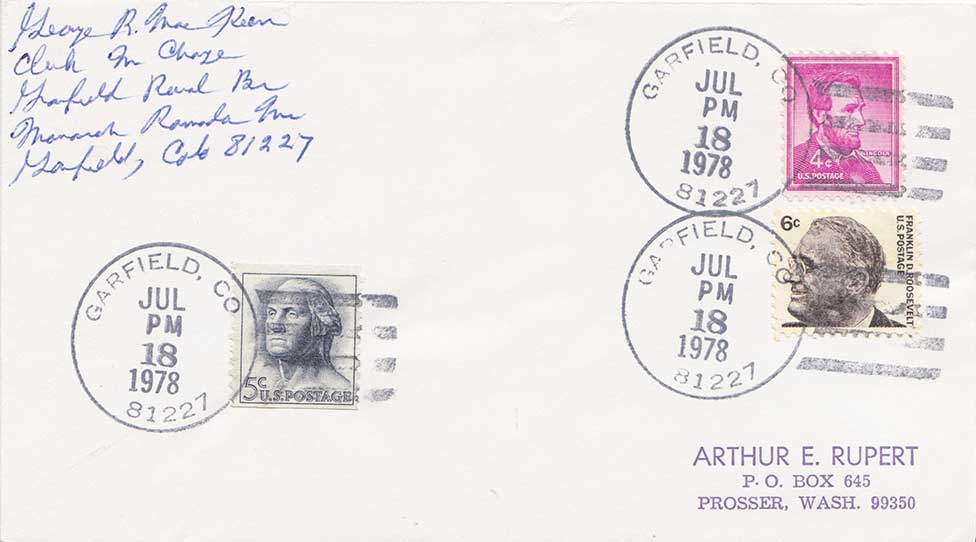 George R. Mac Keen
Clerk In Charge
Garfield Rural Br
Monarch Ramada Inn
Garfield, Colo 81227
GARFIELD, CO
JUL
PM
18
1978
81227
4¢
LINCOLN
U.S. POSTAGE
GARFIELD, CO
JUL
PM
18
1978
81227
6c
FRANKLIN D. ROOSEVELT
U.S. POSTAGE
GARFIELD, CO
JUL
PM
18
1978
81227
5c
U.S. POSTAGE
ARTHUR E. RUPERT
P. O. BOX 645
PROSSER, WASH. 99350